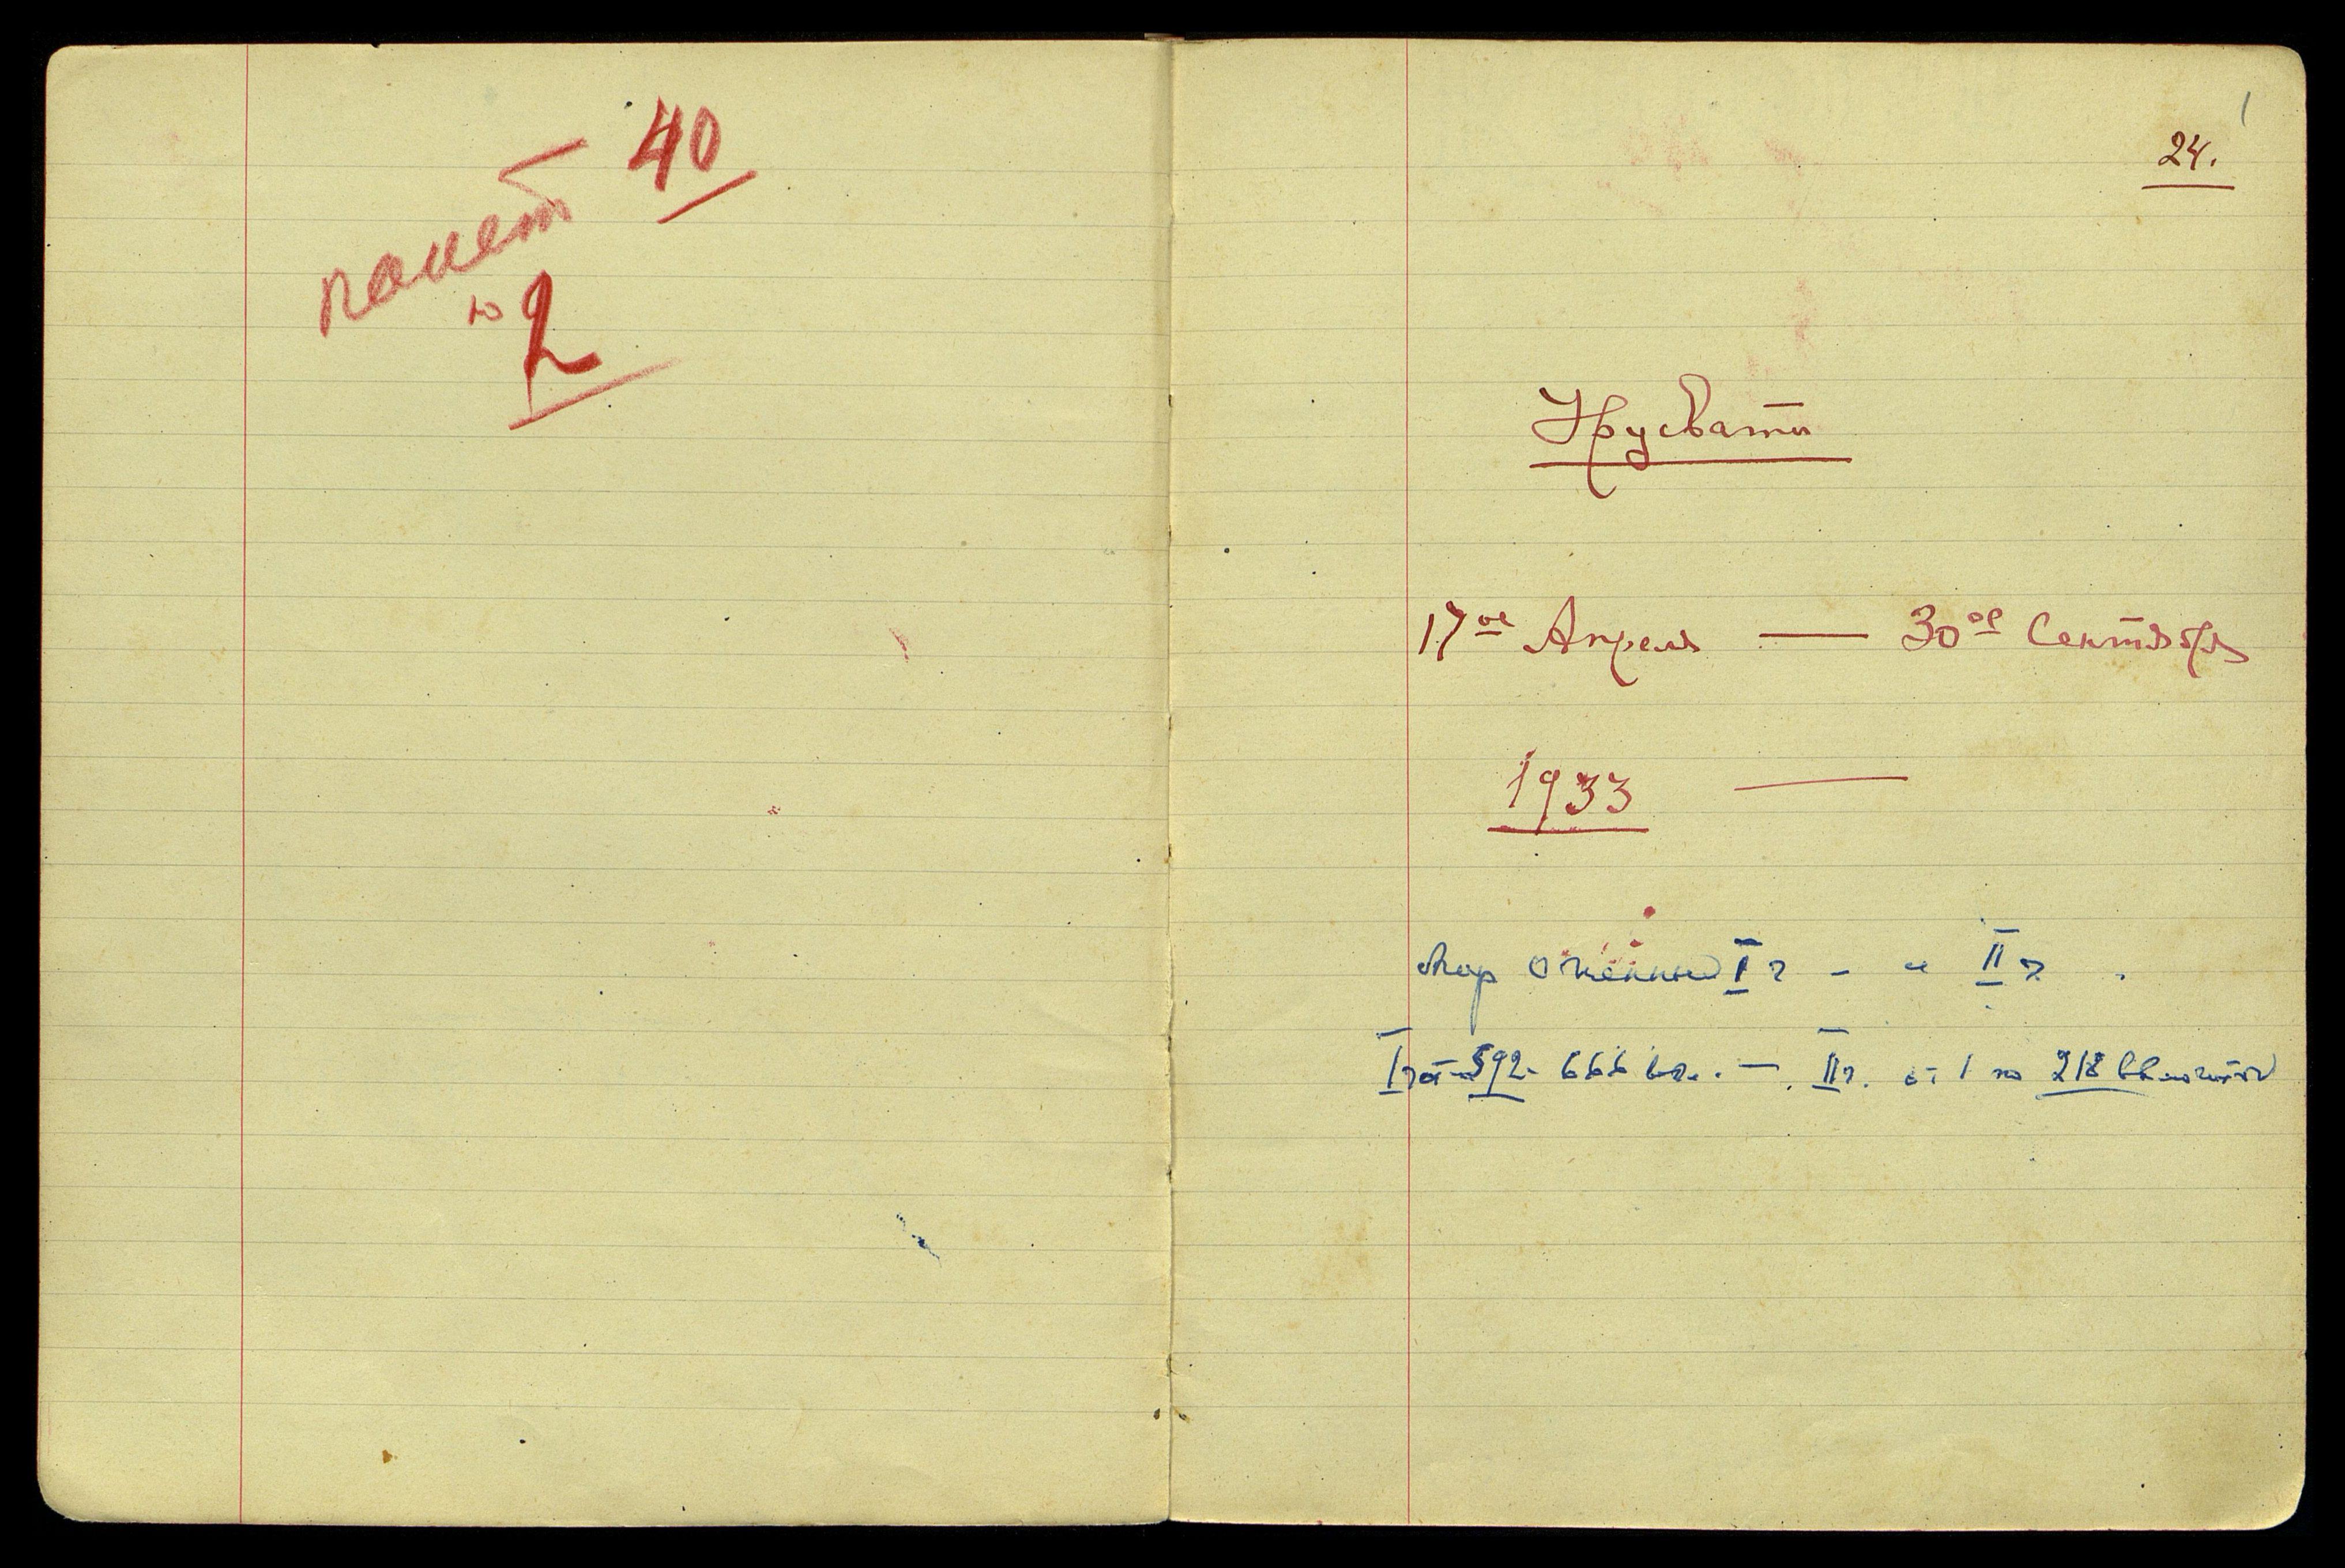 пакет 40
№ 2
1
24.
Урусвати
17ое Апреля — 30ое Сентября
1933 —
Мир Огненный I ч – и II ч.
I ч от 592 – 666 вкл. — II ч. от 1 по 218 включитель